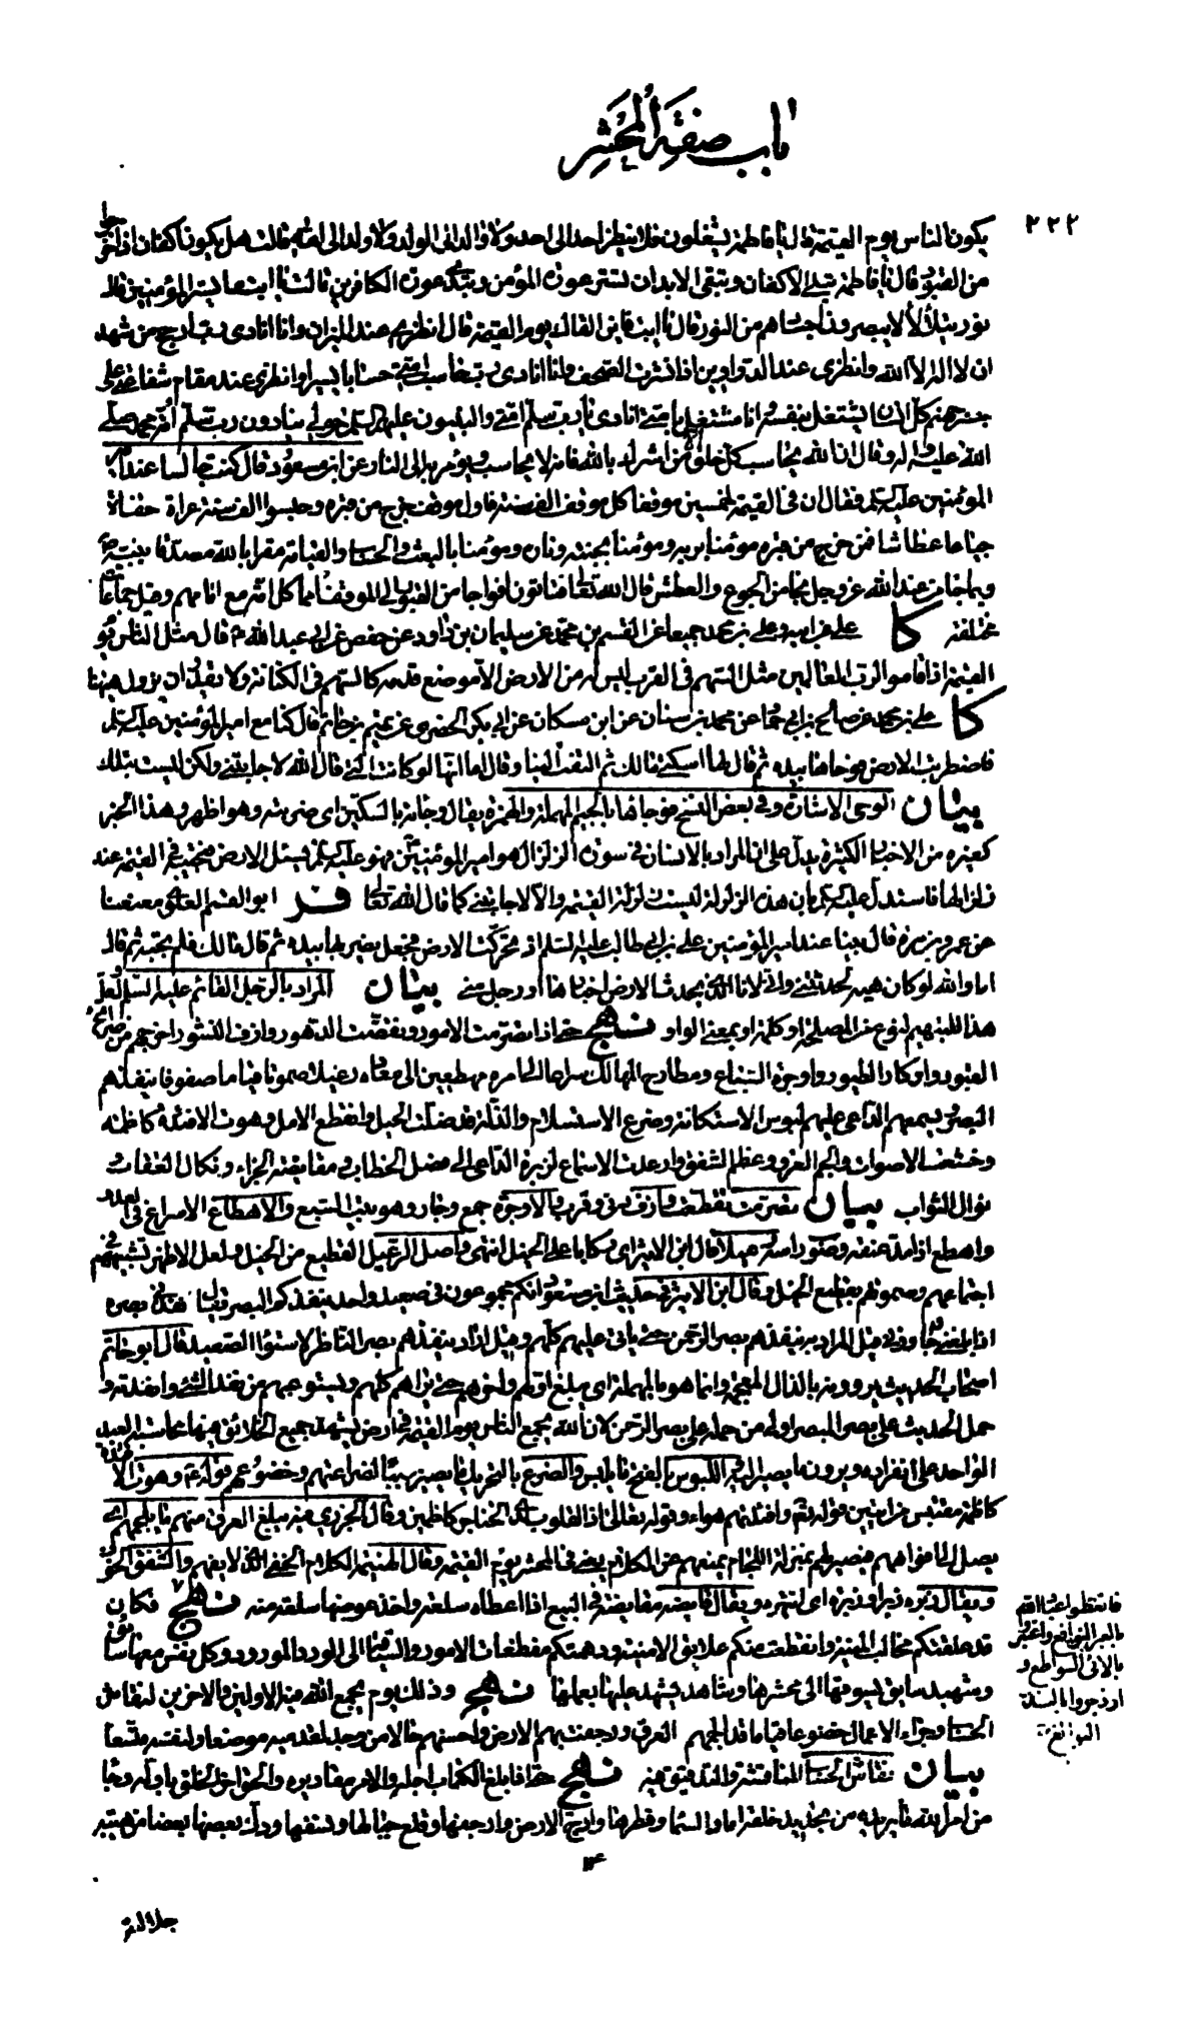 باب صفة المحشر
٢٢٢
يكون الناس يوم القيمة قال يا فاطمة يشغلون فلا ينظر احد الى احد ولا والد الى الولد ولا ولد الى امه قالت هل يكون اكفان اذا خرجوا
من القبور قال يا فاطمة تبلى الاكفان وتبقى الابدان تستر عورة المؤمن وتبدى عورة الكافرين قالت يا ابت ما يستر المؤمنين قال
نور يتلألأ لا يبصرون اجسادهم من النور قال يا ابت فاين القاك يوم القيمة قال انظرى عند الميزان وانا انادى رب ارجح من شهد
ان لا اله الا الله وانظرى عند الدواوين اذا نشرت الصحف وانا انادى رب حاسب امتى حسابا يسيرا وانظرى عند مقام شفاعتى على
جسر جهنم كل انسان يشتغل بنفسه وانا مشتغل بامتى انادى يا رب سلم امتى والنبيون عليهم السلم حولى ينادون رب سلم امة محمد صلى
الله عليه واله وقال ان الله يحاسب كل خلق الا من اشرك بالله فانه لا يحاسب ويؤمر به الى النار عن ابن مسعود قال كنت جالسا عند امير
المؤمنين عليه السلم فقال ان فى القيمة لخمسين موقفا كل موقف الف سنة فاول موقف خرج من قبره وحبسوا الف سنة عراة حفاة
جياعا عطاشا فمن خرج من قبره مؤمنا بربه ومؤمنا بجنته وناره ومؤمنا بالبعث والحساب والقيامة مقرا بالله مصدقا بنبيه ص
وبما جاء من عند الله عز وجل نجا من الجوع والعطش قال الله تعالى فتاتون افواجا من القبور الى الموقف امما كل امة مع امامهم وقيل جماعات
مختلفة كا على عن ابيه وعلى بن محمد جميعا عن القسم بن محمد عن سليمان بن داود عن حفص عن ابى عبد الله ع قال مثل الناس يوم
القيمة اذا قاموا لرب العالمين مثل السهم فى القرب ليس له من الارض الا موضع قدمه كالسهم فى الكنانة ولا يقدر ان يزول ههنا
كا على بن محمد عن صالح بن ابى حماد عن محمد بن سنان عن ابن مسكان عن ابى بكر الحضرمى عن تميم بن حاتم قال كنا مع امير المؤمنين عليه السلم
فاضطربت الارض فوحاها بيده ثم قال لها اسكنى مالك ثم التفت الينا وقال اما انها لو كانت التى قال الله لاجابتنى ولكن ليست بتلك
بيان الوحى الاشارة وفى بعض النسخ فوجاها بالجيم المهملة والهمزة يقال وجاته بالسكين اى ضربته وهو اظهر وهذا الخبر
كغيره من الاخبار الكثيرة يدل على ان المراد بالانسان فى سورة الزلزال هو امير المؤمنين فهو عليه السلم يسئل الارض فتجيبه فى القيمة عند
زلزالها فاستدل عليه السلم بان هذه الزلزلة ليست زلزلة القيمة والا لاجابتنى كما قال الله تعالى فر ابو القسم العلوى معنعنا
عن عمرو بن مرة قال بينا عند امير المؤمنين على بن ابى طالب عليه السلام اذ تحركت الارض فجعل يضربها بيده ثم قال مالك فلم تجبه ثم قال
اما والله لو كان هيه لحدثتنى وانى لانا الذى يحدث الارض اخبارها او رجل منى بيان المراد بالرجل القائم عليه السلم ولعل
هذا للتبهيم لنوع من المصلحة او كلمة او بمعنى الواو نهج حتى اذا تصرمت الامور وتقضت الدهور وازف النشور اخرجهم من ضرائح
القبور واوكار الطيور واوجرة السباع ومطارح المهالك سراعا الى امره مهطعين الى معاده رعيلا صموتا قياما صفوفا ينفذهم
البصر ويسمعهم الداعى عليهم لبوس الاستكانة وضرع الاستسلام والذلة قد ضلت الحيل وانقطع الامل وهوت الافئدة كاظمة
وخشعت الاصوات والجم العرق وعظم الشفق وارعدت الاسماع لزبرة الداعى الى فصل الخطاب ومقايضة الجزاء ونكال العقاب
نوال الثواب بيان تصرمت تقطعت وازف دنى وقرب والاوجرة جمع وجار وهو بيت السبع والاهطاع الاسراع فى العدو
واهطع اذا مد عنقه وصوب راسه رعيلا قال ابن الاثير اى ركابا على الخيل انتهى واصل الرعيل القطيع من الخيل ولعل الاظهر تشبيههم فى
اجتماعهم وصموتهم بقطيع الخيل وقال ابن الاثير فى حديث ابن مسعود انكم مجموعون فى صعيد واحد ينفذكم البصر يقال نفذنى بصره
اذا بلغنى وجاوزنى قيل المراد به ينفذهم بصر الرحمن حتى ياتى عليهم كلهم وقيل اراد ينفذهم بصر الناظر لاستواء الصعيد قال ابو حاتم
اصحاب الحديث يروونه بالذال المعجمة وانما هو بالمهملة اى يبلغ اولهم واخرهم حتى يراهم كلهم ويستوعبهم من نفد الشئ وانفدته و
حمل الحديث على بصر المبصر اولى من حمله على بصر الرحمن لان الله يجمع الناس يوم القيمة فى ارض يشهد جميع الخلائق فيها محاسبة العبد
الواحد على انفراده ويرون ما يصير اليه اللبوس بالفتح ما يلبس والضرع بالتحريك ما يصير سببا لضراعتهم وخضوعهم قوله ع وهوت الافئدة
كاظمة مقتبس من ايتين قوله تعم وافئدتهم هواء وقوله تعالى اذ القلوب لدى الحناجر كاظمين وقال الجزرى فيه يبلغ العرق منهم ما يلجمهم اى
يصل الى افواههم فيصير لهم بمنزلة اللجام يمنعهم عن الكلام يعنى فى المحشر يوم القيمة وقال الهينمة الكلام الخفى الذى لا يفهم والشفق الخوف
ويقال زبره زبرا وزبرة اى انتهره ويقال قايضه مقايضة فى البيع اذا اعطاه سلعة واخذ عوضها سلعة منه نهج فكان
قد علقتكم مخالب المنية وانقطعت منكم علايق الامنية ودهمتكم مفظعات الامور والسياقة الى الورد المورود وكل نفس معها سائق
وشهيد سايق يسوقها الى محشرها وشاهد يشهد عليها بعملها نهج وذلك يوم يجمع الله فيه الاولين والاخرين لنقاش
الحساب وجزاء الاعمال خضوعا قياما قد الجمهم العرق ورجفت بهم الارض واحسنهم حالا من وجد لقدميه موضعا ولنفسه متسعا
بيان نقاش الحساب المناقشة والتدقيق فيه نهج حتى اذا بلغ الكتاب اجله والامر مقاديره والحق اخر الخلق باوله وجاء
من امر الله ما يريده من تجديد خلقه اماد السماء وفطرها وارج الارض وارجفها وقلع جبالها ونسفها ودك بعضها بعضا من هيبة
فاتعظوا عباد الله
بالعبر النوافع واعتبروا
بالاى السواطع و
ازدجروا بالنذر
البوالغ
جلالته